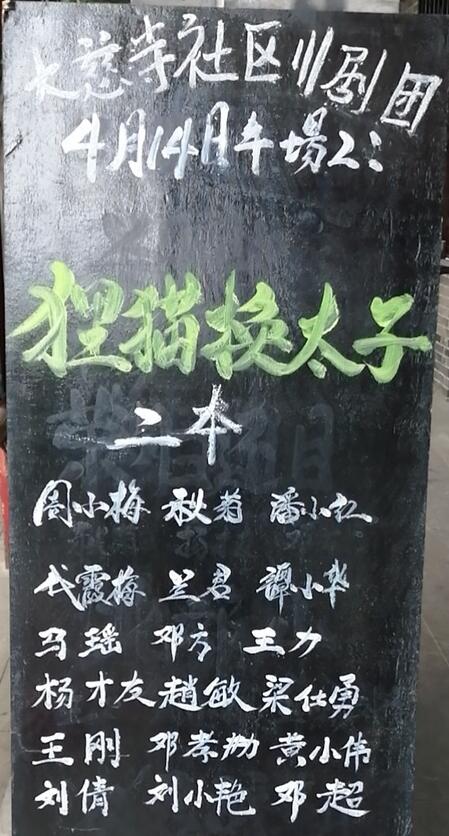 大慈寺社区川剧团
4月14日午場2:
狸猫换太子
二本
周小梅 秋菊 潘小红
代霞梅 兰君 譚小华
马瑶 邓方 王力
杨才友 趙敏 梁仕勇
王刚 邓孝 黄小伟
刘倩 刘小艳 邓超